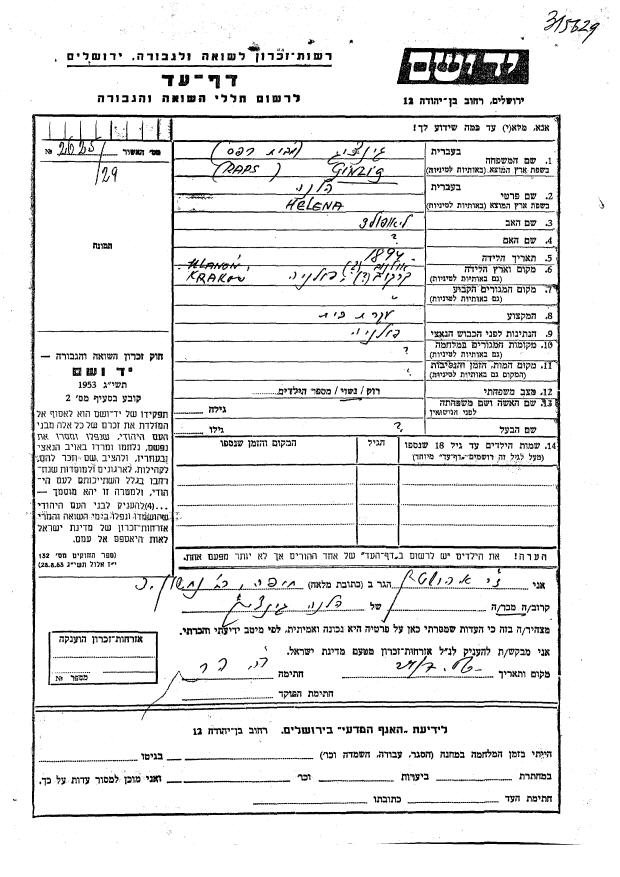 315629
רשות-זכרון לשואה ולגבורה, ירושלים
דף-עד
לרשום חללי השואה והגבורה
יד ושם
ירושלים, רחוב בן-יהודה 12
אנא, מלא(י) עד כמה שידוע לך!
מס' האשור
№ 2625/29
תמונה
1. שם המשפחה
בעברית
גינציג (מבית רפס)
בשפת ארץ המוצא (באותיות לטיניות)
GINZIG (RAPS)
2. שם פרטי
בעברית
הלנה
בשפת ארץ המוצא (באותיות לטיניות)
HELENA
3. שם האב
ליאופולד
4. שם האם
?
5. תאריך הלידה
1894
6. מקום וארץ הלידה
(גם באותיות לטיניות)
KRAKOW
פולניה
7. מקום המגורים הקבוע
(גם באותיות לטיניות)
8. המקצוע
עקרת בית
9. הנתינות לפני הכבוש הנאצי
פולניה
10. מקומות המגורים במלחמה
(גם באותיות לטיניות)
?
11. מקום המות, הזמן והנסיבות
(המקום גם באותיות לטיניות)
?
12. מצב משפחתי
רווק / נשוי / מספר הילדים
13. שם האשה ושם משפחתה
לפני הנישואין
גילה
שם הבעל
?
גילו
14. שמות הילדים עד גיל 18 שנספו
(מעל לגיל זה רושמים "דף-עד" מיוחד)
הגיל
המקום והזמן שנספו
חוק זכרון השואה והגבורה —
יד ושם
תשי"ג 1953
קובע בסעיף מס' 2
תפקידו של יד-ושם הוא לאסוף אל
המולדת את זכרם של כל אלה מבני
העם היהודי, שנפלו ומסרו את
נפשם, נלחמו ומרדו באויב הנאצי
ובעוזריו, ולהציב שם וזכר להם,
לקהילות, לארגונים ולמוסדות שנח-
רבו בגלל השתייכותם לעם הי-
הודי, ולמטרה זו יהא מוסמך —
...(4) להעניק לבני העם היהודי
שהושמדו ונפלו בימי השואה והמרי
אזרחות-זכרון של מדינת ישראל
לאות היאספם אל עמם.
(ספר החוקים מס' 132
י"ז אלול תשי"ג 28.8.53)
הערה! את הילדים יש לרשום ב"דף-העד" של אחד ההורים אך לא יותר מפעם אחת.
אני
הגר ב (כתובת מלאה) חיפה,
קרוב/ה מכר/ה
של הלנה גינציג
מצהיר/ה בזה כי העדות שמסרתי כאן על פרטיה היא נכונה ואמיתית, לפי מיטב ידיעתי והכרתי.
אני מבקש/ת להעניק לנ"ל אזרחות-זכרון מטעם מדינת ישראל.
מקום ותאריך
חתימה
חתימת הפוקד
אזרחות-זכרון הוענקה
מספר №
לידיעת "האגף המדעי" בירושלים, רחוב בן-יהודה 12
הייתי בזמן המלחמה במחנה (הסגר, עבודה, השמדה וכו')
בגיטו
במחתרת
ביערות
וכו'
ואני מוכן למסור עדות על כך.
חתימת העד
כתובתו